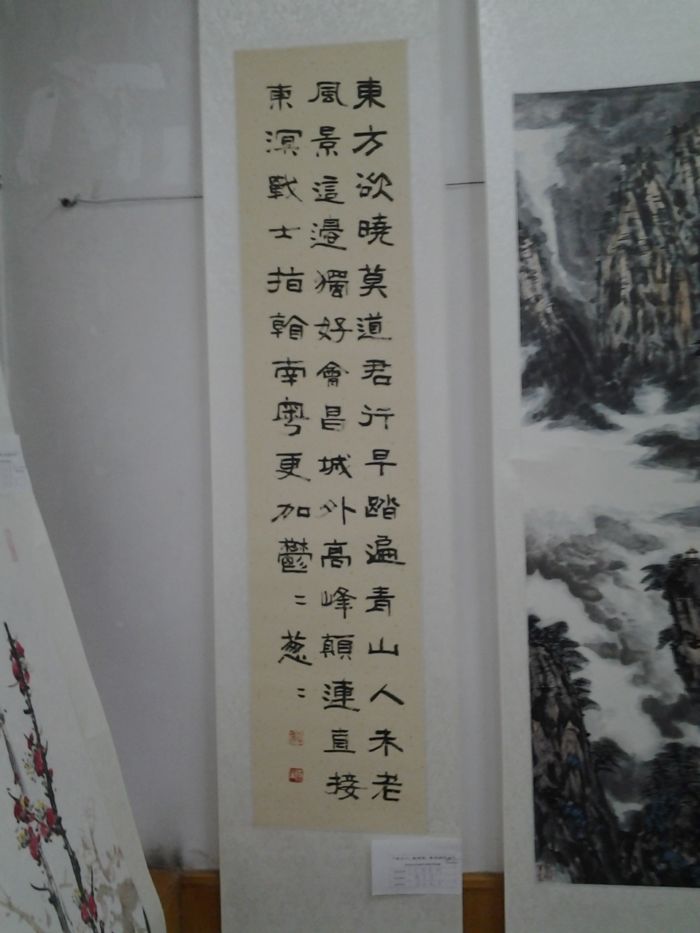 東方欲曉莫道君行早踏遍青山人未老
風景這邊獨好會昌城外高峰顛連直接
東溟戰士指看南粵更加鬱〻葱〻